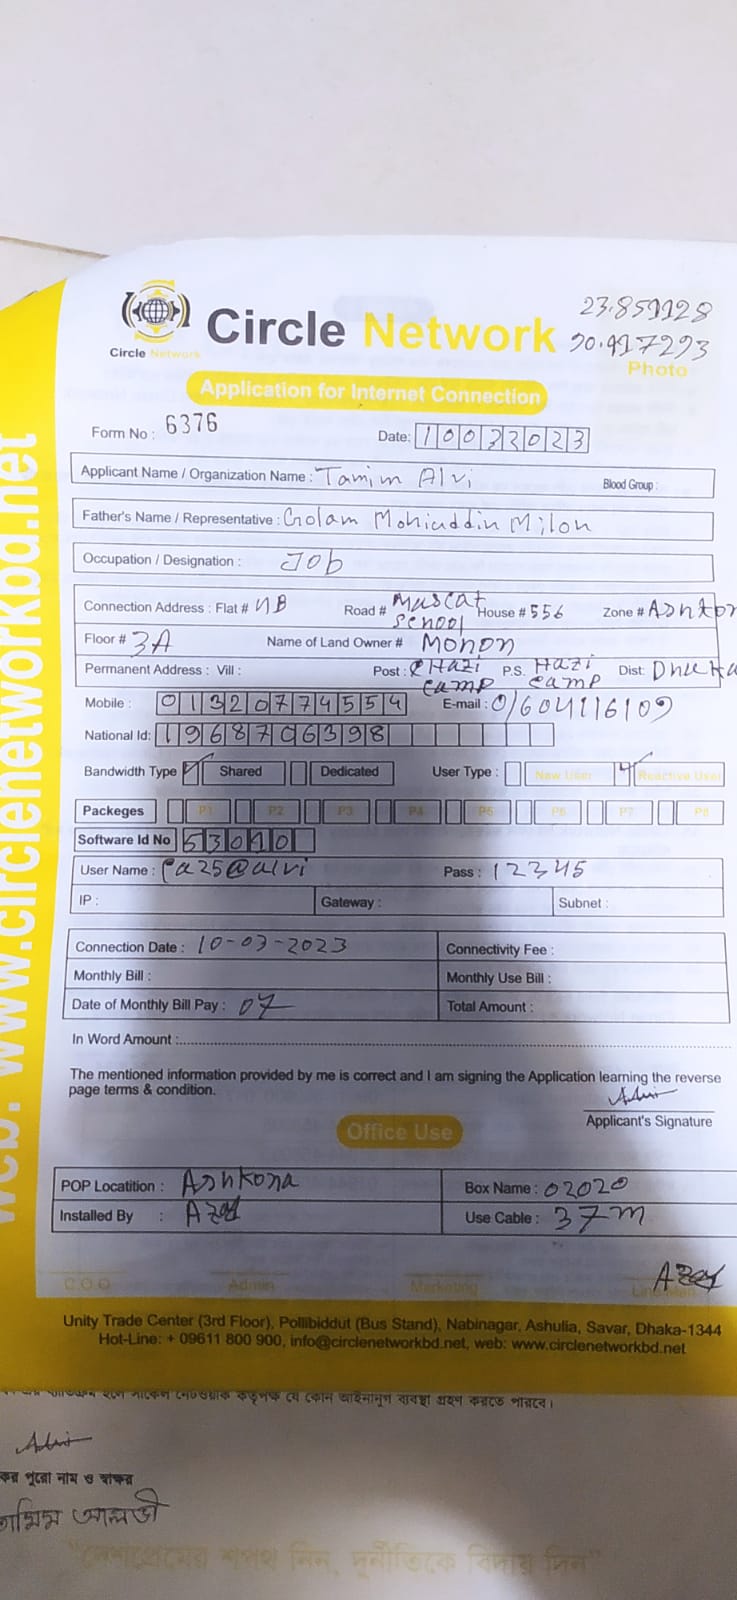 Circle Network
23.859128
90.417293
Circle Network
Photo
Application for Internet Connection
Form No : 6376
Date: 10032023
Applicant Name / Organization Name : Tamim Alvi Blood Group :
Father's Name / Representative : Golam Mohiuddin Milon
Occupation / Designation : Job
Connection Address : Flat # NB Road # Muscat School House # 556 Zone # Ashkon
Floor # 3A Name of Land Owner # Monon
Permanent Address : Vill : Post : Hazi camp P.S. Hazi camp Dist: Dhaka
Mobile : 01320774554 E-mail : 01604116109
National Id: 1968706398
Bandwidth Type Shared Dedicated User Type : New User Reactive User
Packeges P1 P2 P3 P4 P5 P6 P7 P8
Software Id No 53010
User Name : ca25@alvi Pass : 12345
IP : Gateway : Subnet :
Connection Date : 10-03-2023 Connectivity Fee :
Monthly Bill : Monthly Use Bill :
Date of Monthly Bill Pay : 07 Total Amount :
In Word Amount :
The mentioned information provided by me is correct and I am signing the Application learning the reverse
page terms & condition.
Alvi
Applicant's Signature
Office Use
POP Locatition : Ashkona Box Name : 02020
Installed By : Azad Use Cable : 37m
Azad
C.O.O Admin Marketing Line Man
Unity Trade Center (3rd Floor), Pollibiddut (Bus Stand), Nabinagar, Ashulia, Savar, Dhaka-1344
Hot-Line: + 09611 800 900, info@circlenetworkbd.net, web: www.circlenetworkbd.net
web: www.circlenetworkbd.net
হলে সার্কেল নেটওয়ার্ক কর্তৃপক্ষ যে কোন আইনানুগ ব্যবস্থা গ্রহণ করতে পারবে।
Alvi
পুরো নাম ও স্বাক্ষর
তামিম আলভী
"দেশপ্রেমের শপথ নিন, দুর্নীতিকে বিদায় দিন"